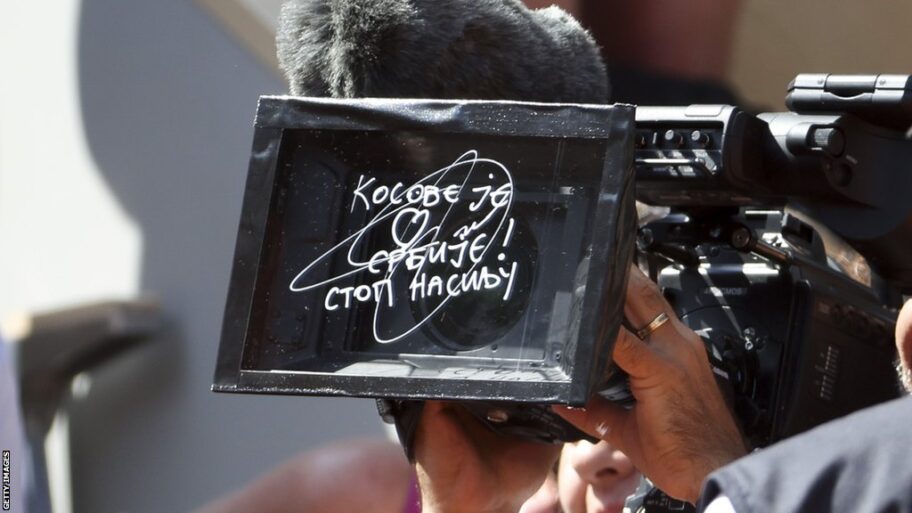 КОСОВЕ ЈЕ
♡
СРБИЈЕ!
СТОП НАСИЉУ
GETTY IMAGES